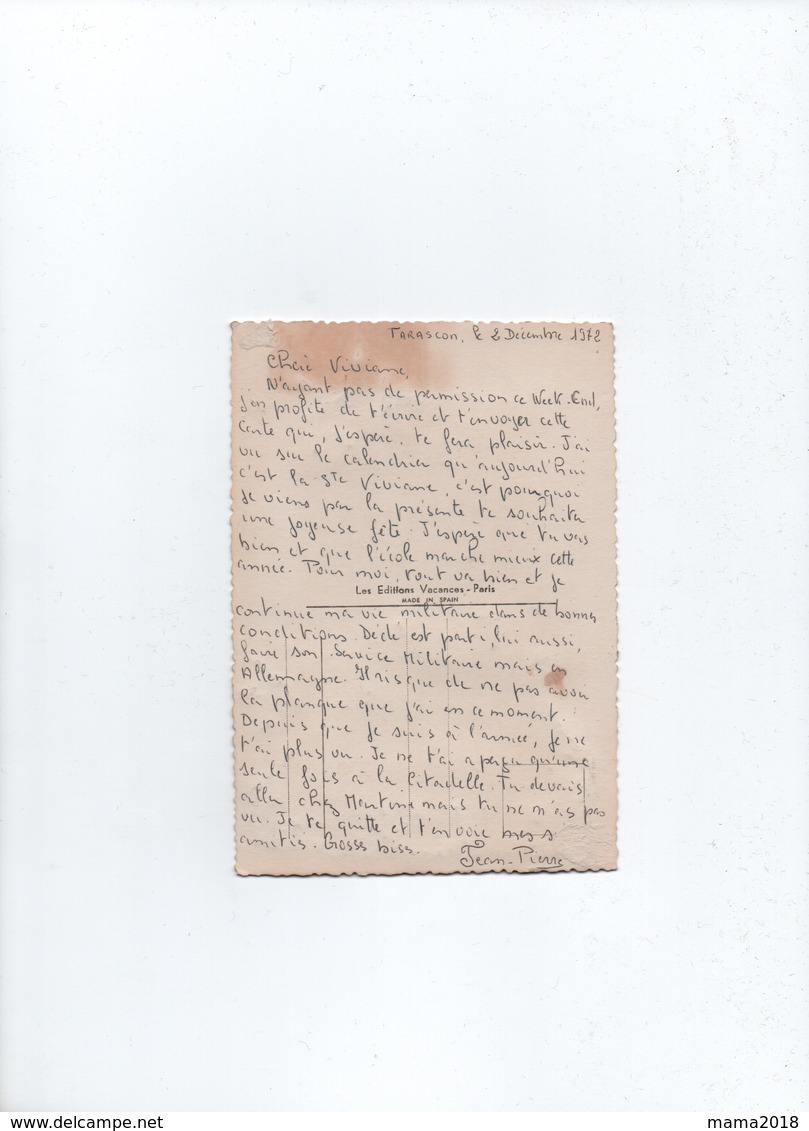 TARASCON, le 2 Décembre 1972
Chère Viviane,
N'ayant pas de permission ce Week-End,
j'en profite de t'écrire et t'envoyer cette
Carte qui, j'espère, te fera plaisir. J'ai
vu sur le calendrier qu'aujourd'hui
c'est la Ste Viviane, c'est pourquoi
je viens par la présente te souhaiter
une joyeuse fête. J'espère que tu vas
bien et que l'école marche mieux cette
année. Pour moi, tout va bien et je
Les Editions Vacances - Paris
MADE IN SPAIN
continue ma vie militaire dans de bonnes
conditions. Dédé est parti, lui aussi,
faire son Service Militaire mais en
Allemagne. Il risque de ne pas avoir
la planque que j'ai en ce moment.
Depuis que je suis à l'armée, je ne
t'ai plus vu. Je ne t'ai aperçu qu'une
seule fois à la Citadelle. Tu devais
aller chez Martine mais tu ne m'as pas
vu. Je te quitte et t'envoie mes
amitis. Grosses biss.
Jean-Pierre
delcampe.net
mama2018